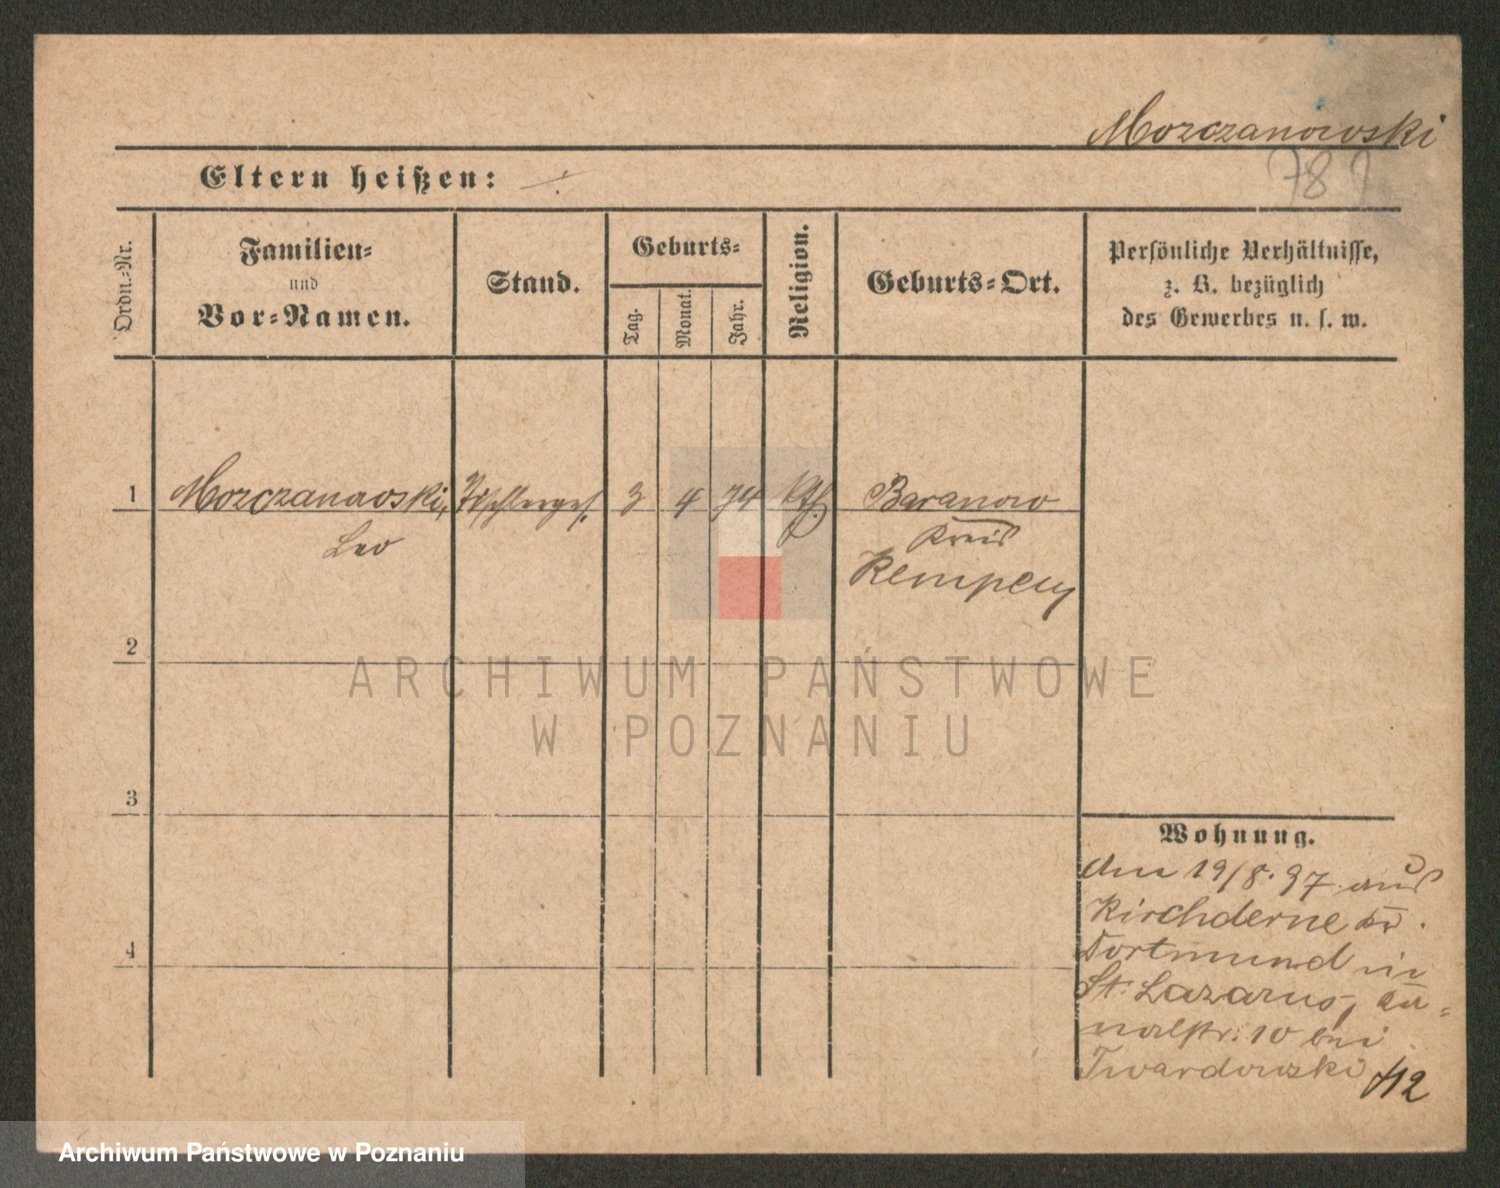 Morczanowski
789
Eltern heißen: ./.
Ordn.-Nr.
Familien-
und
Vor-Namen.
Stand.
Geburts-
Tag.
Monat.
Jahr.
Religion.
Geburts-Ort.
Persönliche Verhältnisse,
z. B. bezüglich
des Gewerbes u. s. w.
1 Morczanowski, Tischlerges. 3 4 74 kth. Baranow
Leo
Kreis
Kempen
2
3
4
Wohnung.
Am 19/8.97 aus
Kirchderne Kr.
Dortmund in
St. Lazarus, Ka-
nalstr. 10 bei
Twardowski
H2
ARCHIWUM PAŃSTWOWE
W POZNANIU
Archiwum Państwowe w Poznaniu